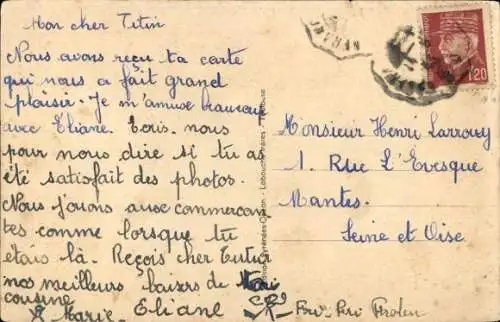 Mon cher Titin
Nous avons reçu ta carte
qui nous a fait grand
plaisir. Je m'amuse beaucoup
avec Eliane. Ecris-nous
pour nous dire si tu a
été satisfait des photos.
Nous jouons aux commerçan
tes comme lorsque tu
étais là. Reçois cher Tutur
nos meilleurs baisers de
cousine
Marie- Eliane
1.20
Monsieur Henri Larrouy
1. Rue L'Evesque
Mantes.
Seine et Oise